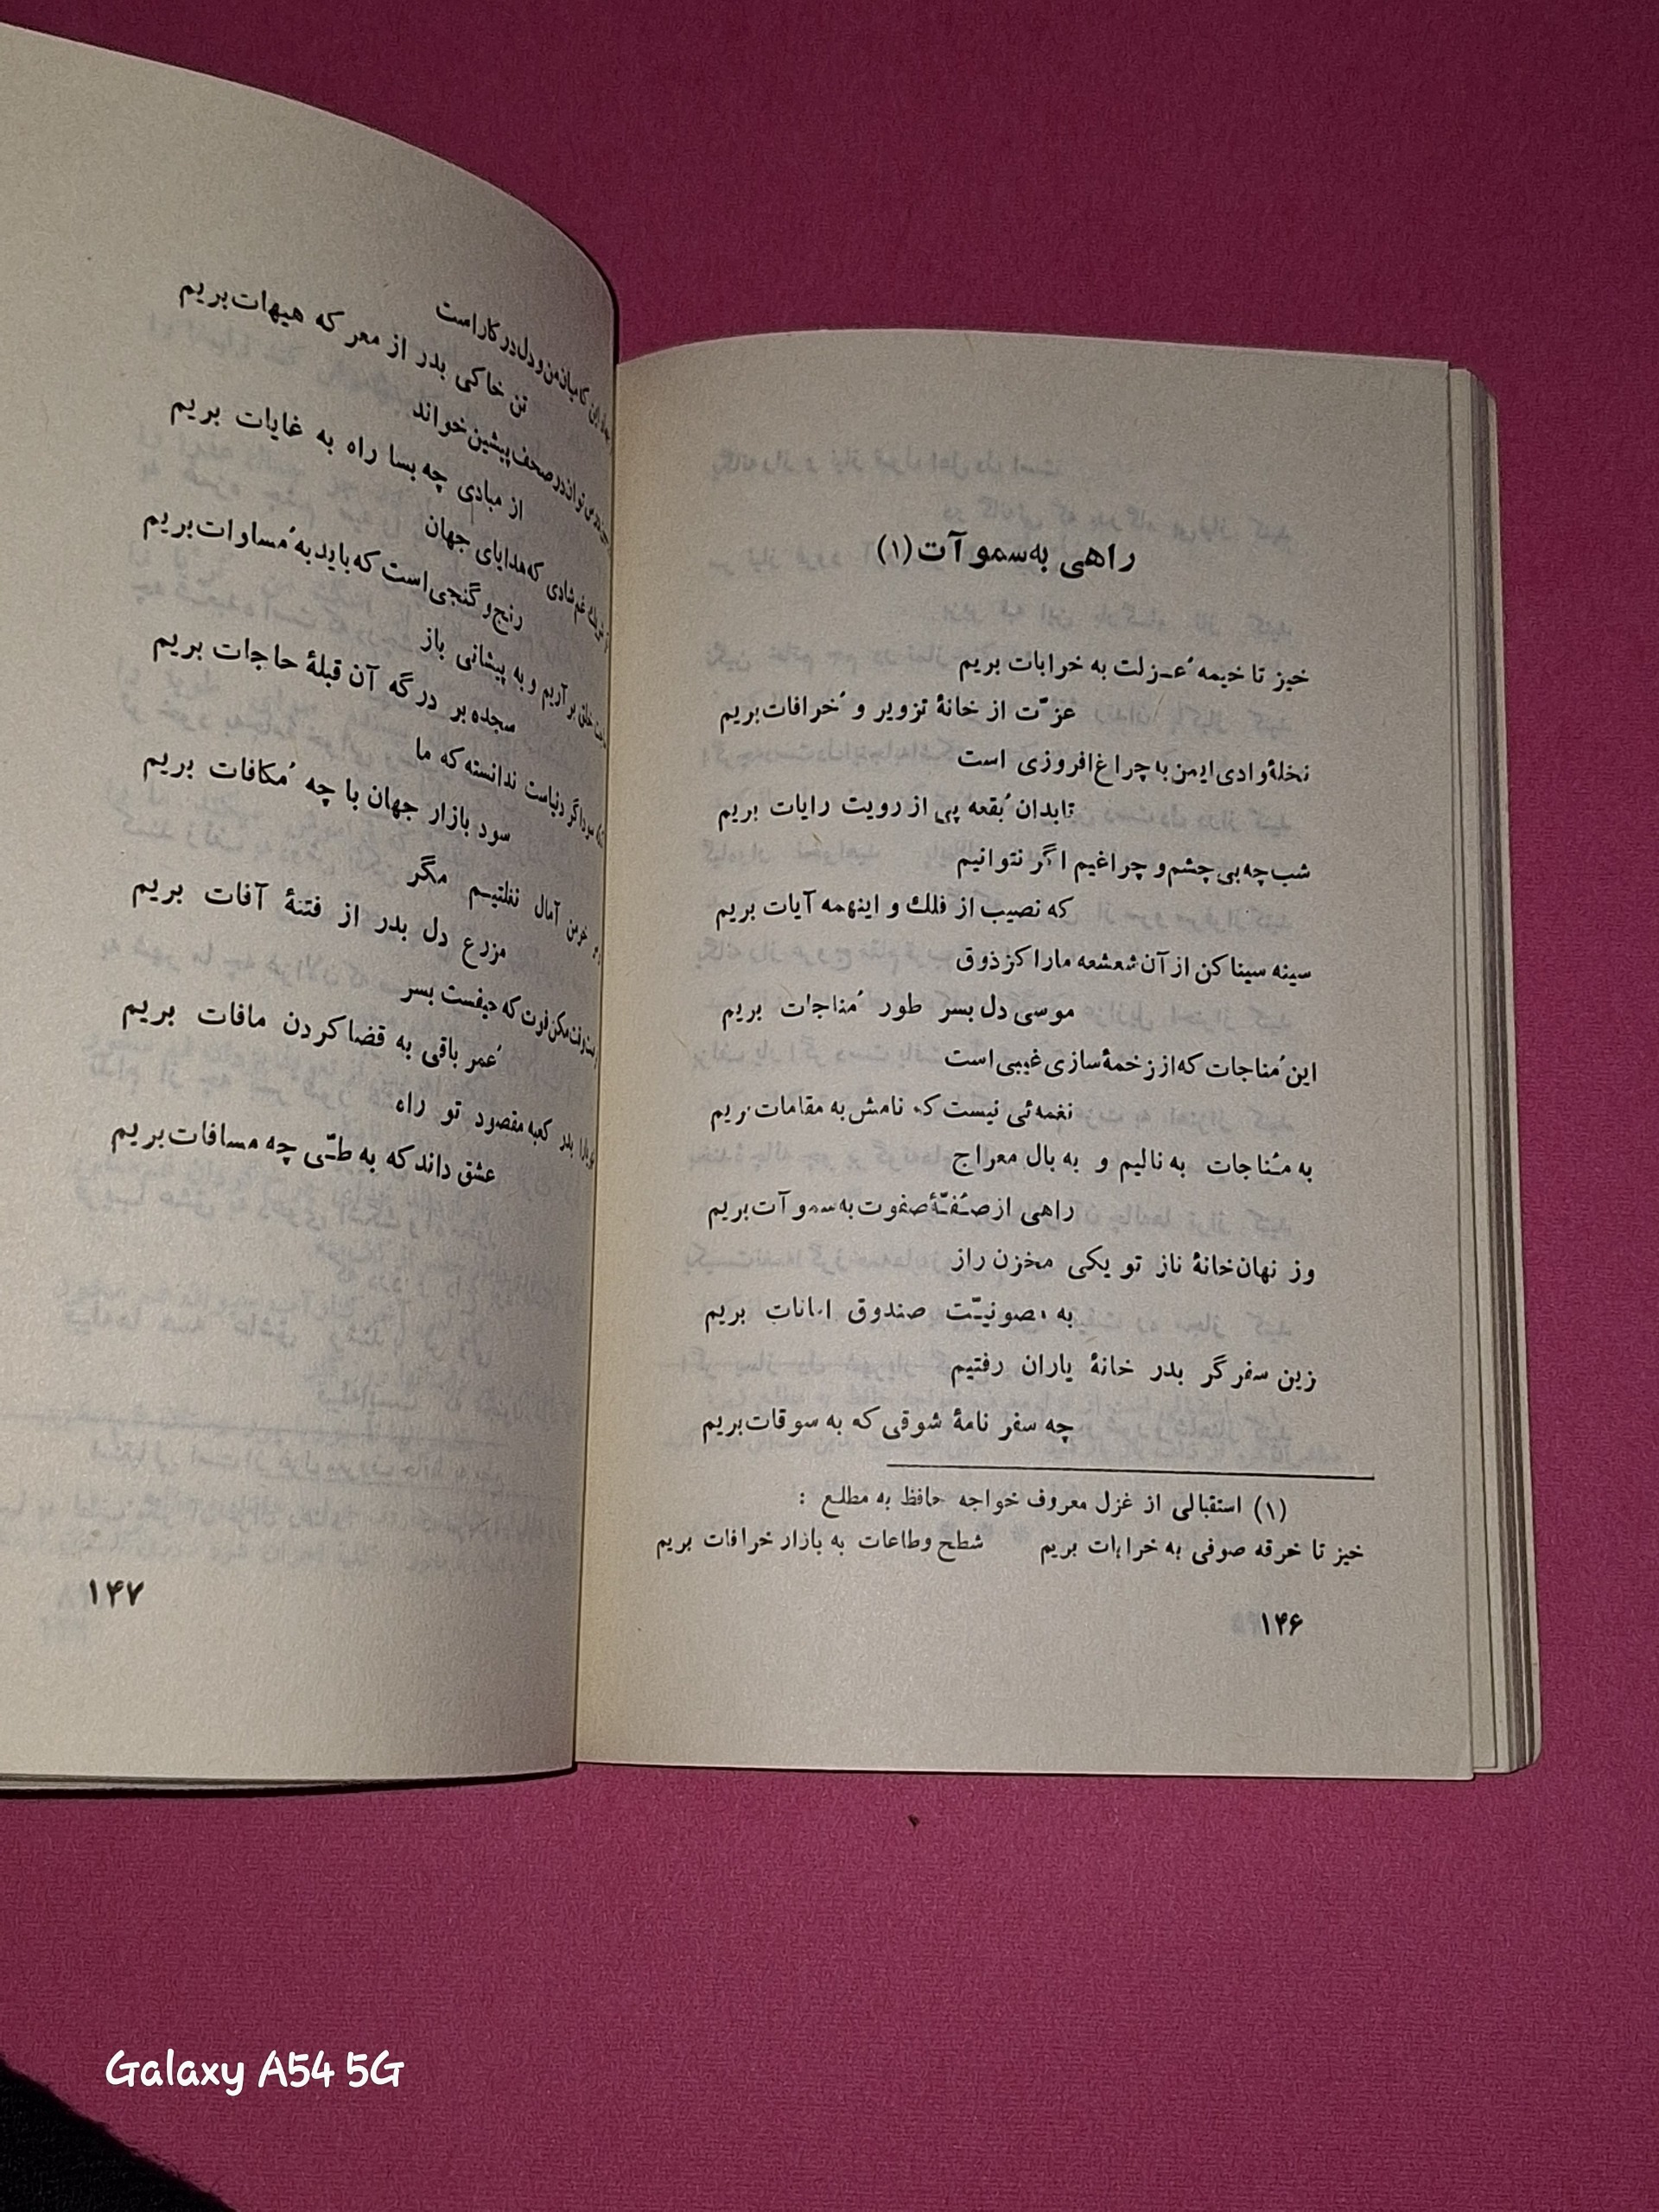 راهی به سموآت (۱)
خیز تا خیمه عُـزلت به خرابات بریم
عزّت از خانهٔ تزویر و خُرافات بریم
نخلهٔ وادی ایمن با چراغ افروزی است
تابدان بُقعه پی از رویت رایات بریم
شب چه بی چشم و چراغیم اگر نتوانیم
که نصیب از فلك و اینهمه آیات بریم
سینه سیناکن از آن شعشعه ماراکز ذوق
موسی دل بسر طور مُناجات بریم
این مُناجات که از زخمهٔ سازی غیبی است
نغمه‌ئی نیست که نامش به مقامات بریم
به مُناجات به نالیم و به بال معراج
راهی از صُفّهٔ صفوت به سموآت بریم
وز نهان خانهٔ ناز تو یکی مخزن راز
به مصونیّت صندوق امانات بریم
زین سفر گر بدر خانهٔ یاران رفتیم
چه سفر نامهٔ شوقی که به سوقات بریم
(۱) استقبالی از غزل معروف خواجه حافظ به مطلع :
خیز تا خرقه صوفی به خرابات بریم شطح وطاعات به بازار خرافات بریم
۱۴۶
این کا میان من و دل در کار است
تن خاکی بدر از معرکه هیهات بریم
تواند در صحف پیشین خواند
از مبادی چه بسا راه به غایات بریم
غم شادی که هدایای جهان
رنج و گنجی است که باید به مُساوات بریم
بر آریم و به پیشانی باز
سجده بر درگه آن قبلهٔ حاجات بریم
سوداگر دنیاست ندانسته که ما
سود بازار جهان با چه مُکافات بریم
خرمن آمال نغلتیم مگر
مزرع دل بدر از فتنهٔ آفات بریم
وقت مکن فوت که حیفست بسر
عُمر باقی به قضا کردن مافات بریم
بدر کعبه مقصود تو راه
عشق داند که به طـّی چه مسافات بریم
۱۴۷
Galaxy A54 5G